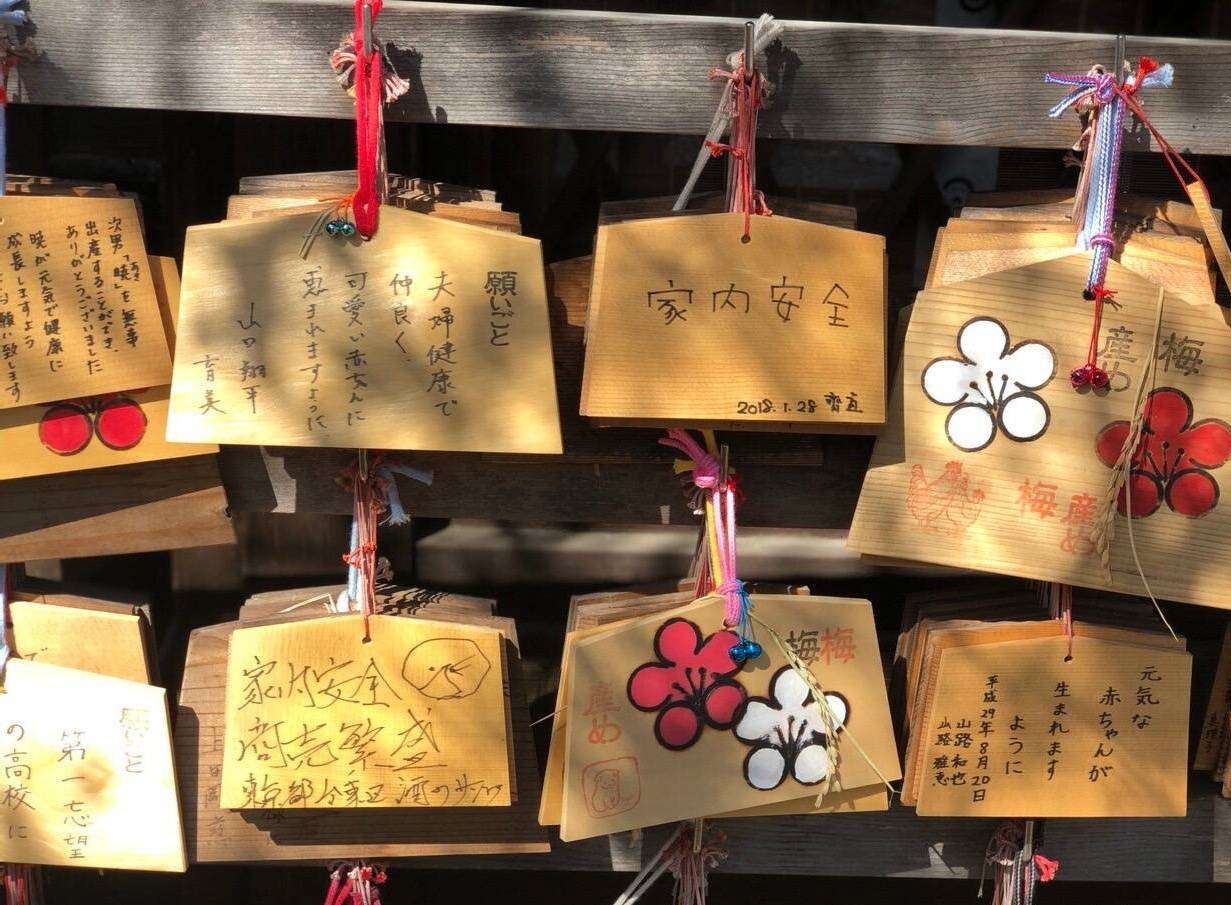 次男「暁」を無事
出産することができ、
ありがとうございました
暁が元気で健康に
成長しますよう
お願い致します
願いごと
夫婦健康で
仲良く、
可愛い赤ちゃんに
恵まれますように。
山口翔平
育美
家内安全
2018.1.28
梅
産め
梅
産め
願いごと
第一志望
の高校に
家内安全
商売繁盛
梅
梅
産め
元気な
赤ちゃんが
生まれます
ように
平成29年8月20日
山路和也
山路雅恵